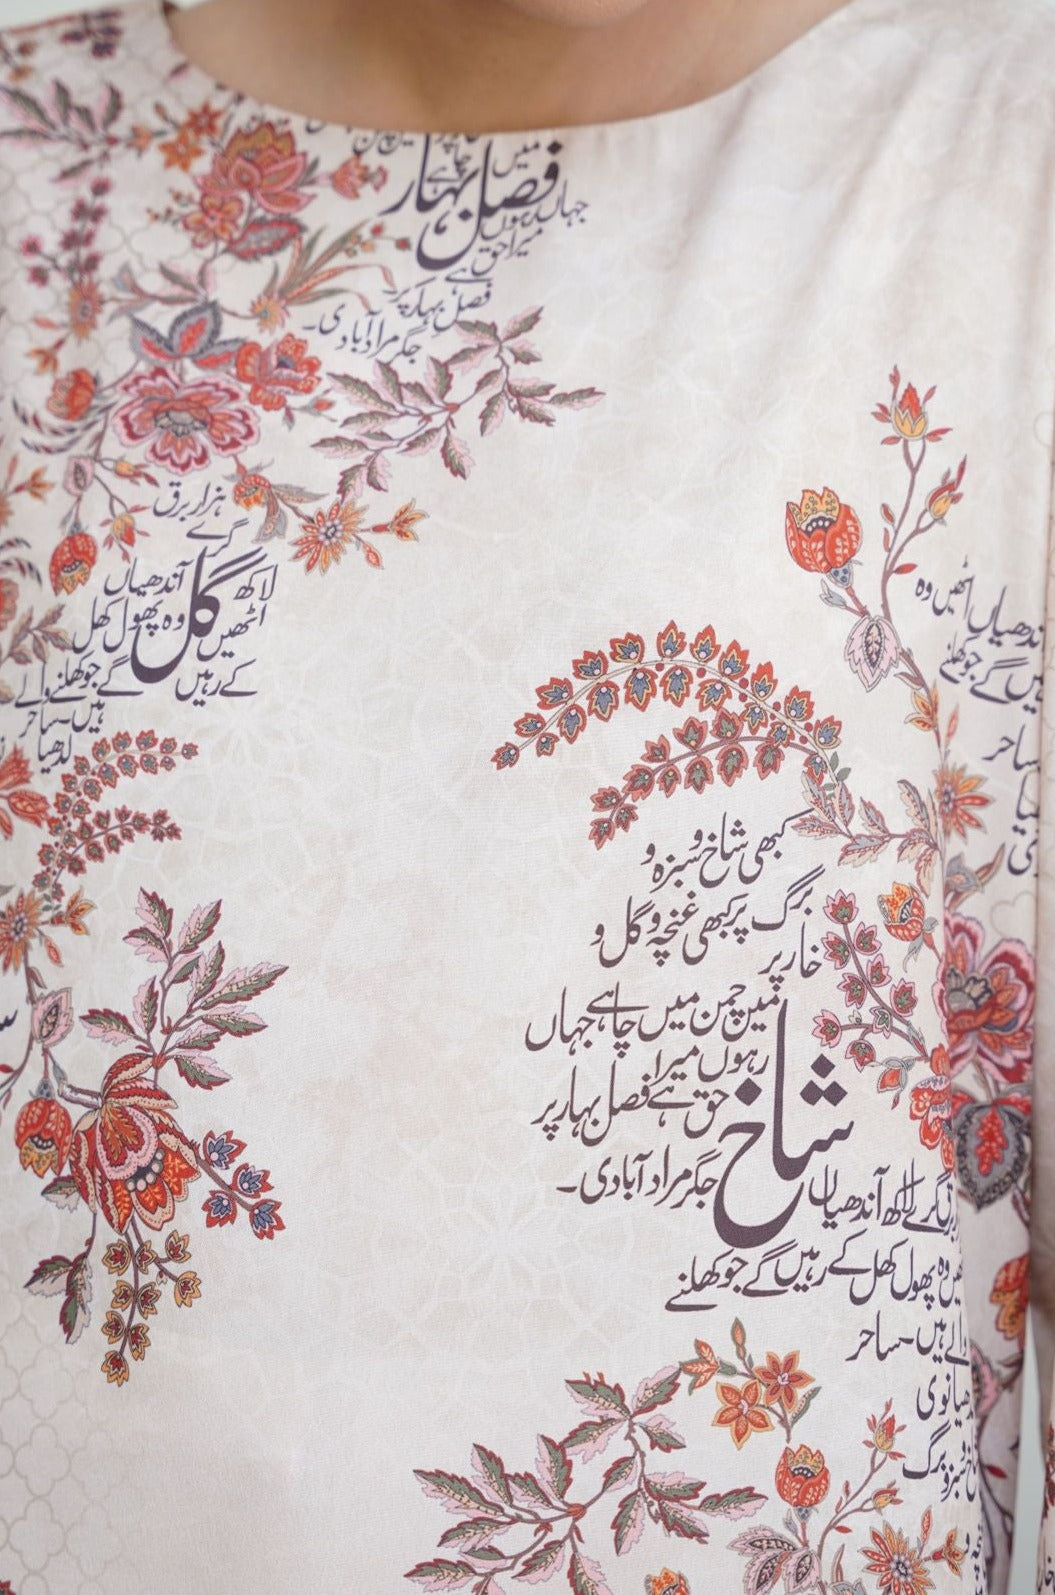 میں چاہے
فصل بہار
جہاں رہوں
میرا حق
ہے
فصل بہار پر
جگر مراد آبادی۔
ہزار برق
گرے
لاکھ آندھیاں
گل
اٹھیں وہ پھول کھل
کے رہیں گے جو کھلنے والے
ہیں۔ ساحر
لدھیا
آندھیاں اٹھیں وہ
رہیں گے جو کھلنے
ساحر
کبھی شاخ و سبزہ و
برگ پر کبھی غنچہ و گل و
خار پر
میں چمن میں چاہے جہاں
رہوں میرا
حق ہے فصل بہار پر
شاخ
جگر مراد آبادی۔
برق گرے لاکھ آندھیاں
اٹھیں وہ پھول کھل کے رہیں گے جو کھلنے
والے ہیں۔ ساحر
لدھیانوی
شاخ و سبزہ و برگ